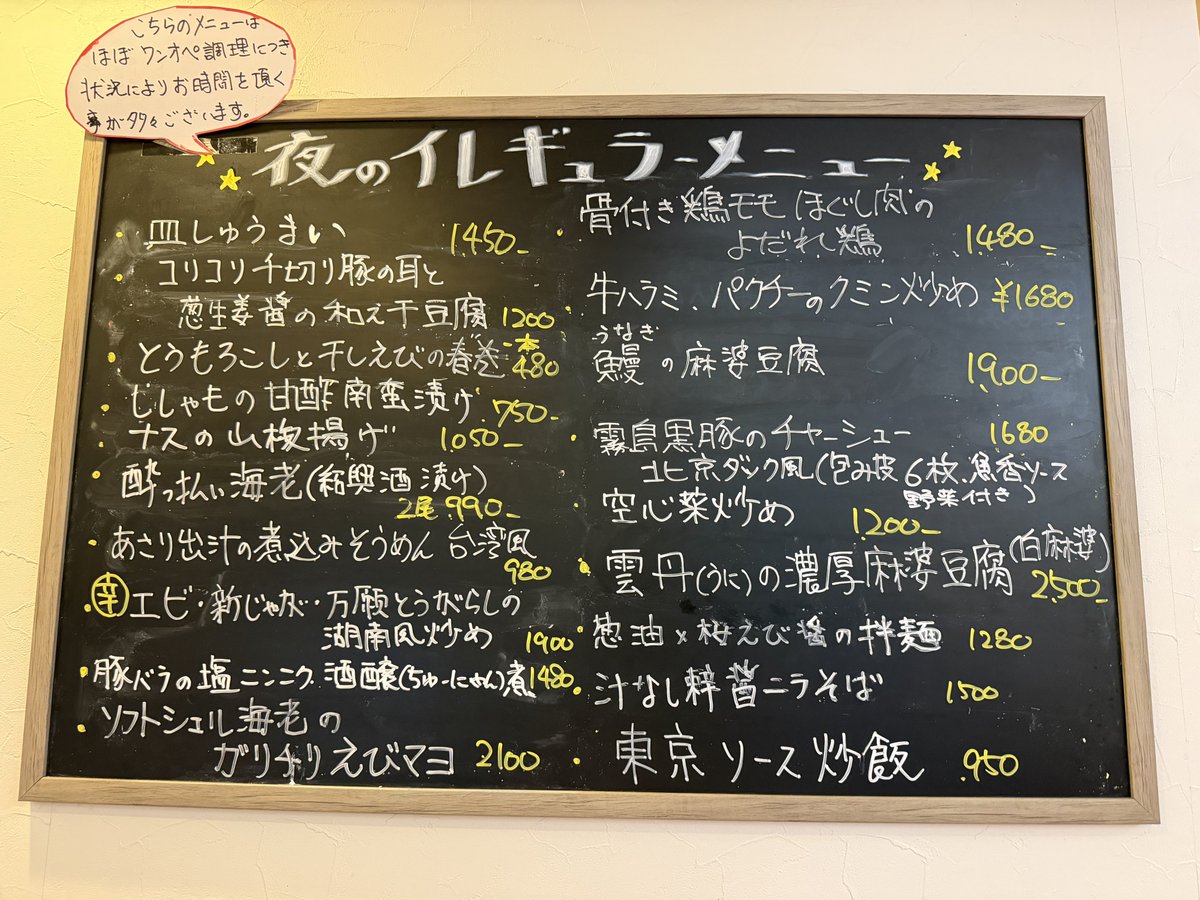 こちらのメニューは
ほぼワンオペ調理につき
状況によりお時間を頂く
事が多々ございます。
夜のイレギュラーメニュー
・皿しゅうまい 1450-
・コリコリ千切り豚の耳と
葱生姜醤の和え干豆腐 1200
・とうもろこしと干しえびの春巻 一本 480
・ししゃもの甘酢南蛮漬け 750-
・ナスの山椒揚げ 1050-
・酔っ払い海老(紹興酒漬け)
2尾 990-
・あさり出汁の煮込みそうめん 台湾風
980
・辛 エビ・新じゃが・万願とうがらしの
湖南風炒め 1900
・豚バラの塩ニンニク酒醸(ちゅーにゃん)煮 1480
・ソフトシェル海老の
ガリチリえびマヨ 2100
骨付き鶏モモほぐし肉の
よだれ鶏 1480-
牛ハラミ、パクチーのクミン炒め ¥1680
うなぎ
鰻の麻婆豆腐 1,900-
・霧島黒豚のチャーシュー 1680
北京ダック風(包み皮6枚、魚香ソース
野菜付き)
・空心菜炒め 1200-
・雲丹(うに)の濃厚麻婆豆腐(白麻婆) 2,500-
・葱油×桜えび醤の拌麺 1280
・汁なし辣醤ニラそば 1500
・東京ソース炒飯 950